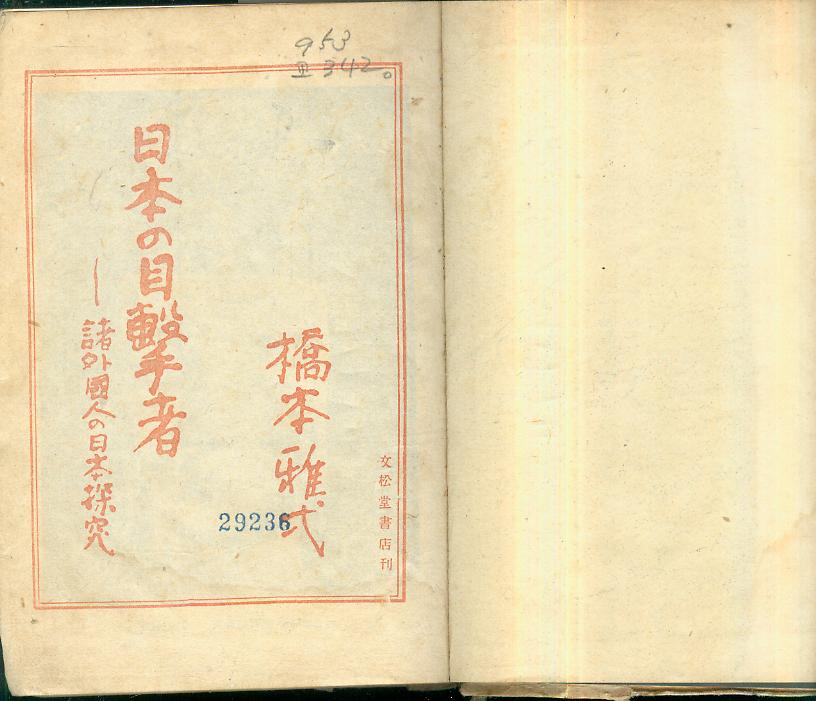 953
Ⅲ 342。
日本の目撃者
—諸外國人の日本探究
橋本雅
29236
文松堂書店刊